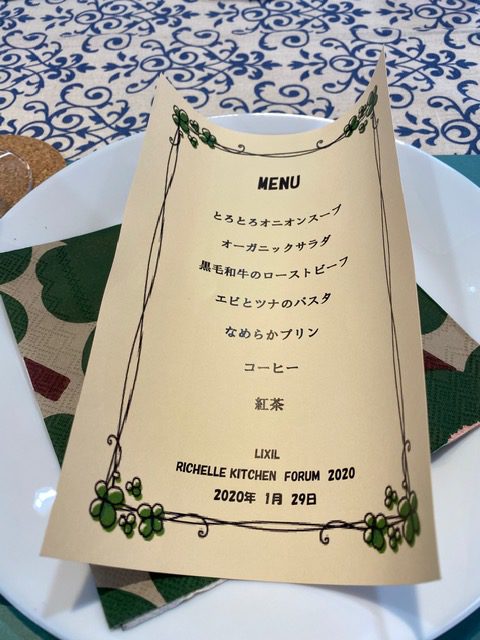 MENU
とろとろオニオンスープ
オーガニックサラダ
黒毛和牛のローストビーフ
エビとツナのパスタ
なめらかプリン
コーヒー
紅茶
LIXIL
RICHELLE KITCHEN FORUM 2020
2020年 1月 29日